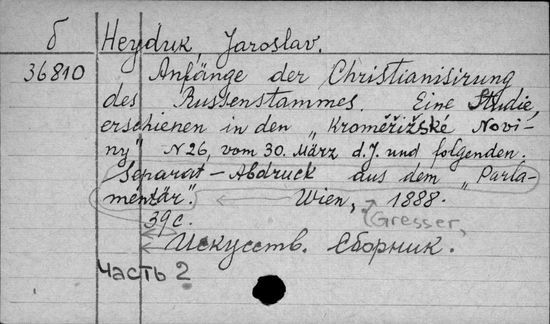 б Heyduk, Jaroslav.
36810 Anfänge der Christianisirung
des Russenstammes. Eine Studie,
erschienen in den „Kroměřižské Novi-
ny" N 26, vom 30. März d. J. und folgenden.
Separat-Abdruck aus dem „Parla-
mentär". Wien, 1888.
39 с. (Gresser,
Искусств. Сборник.
Часть 2